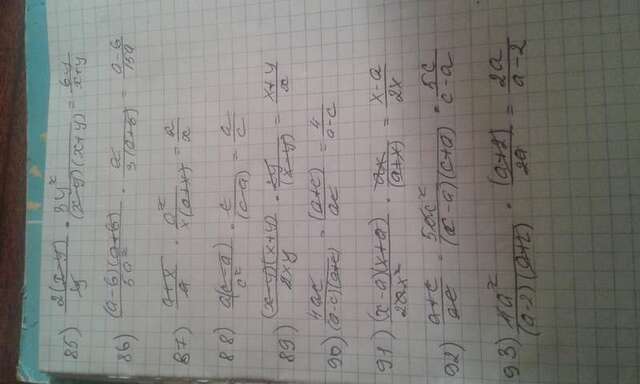 85) 2(x-y)/y · 3y²/(x-y)(x+y) = 6y/x+y
86) (a-b)(a+b)/5a² · a/3(a+b) = a-b/15a
87) a+x/a · a²/x(a+x) = a/x
88) a(c-a)/c² · c/(c-a) = a/c
89) (x-y)(x+y)/2xy · /(x-y) = x+y/
90) 4ac/(a-c)(a+c) · (a+c)/ac = 4/a-c
91) (x-a)(x+a)/2ax² · ax/(a+x) = x-a/2x
92) a+c/ac · 5ac²/(c-a)(c+a) = 5c/c-a
93) 4a²/(a-2)(a+2) · (a+2)/2a = 2a/a-2